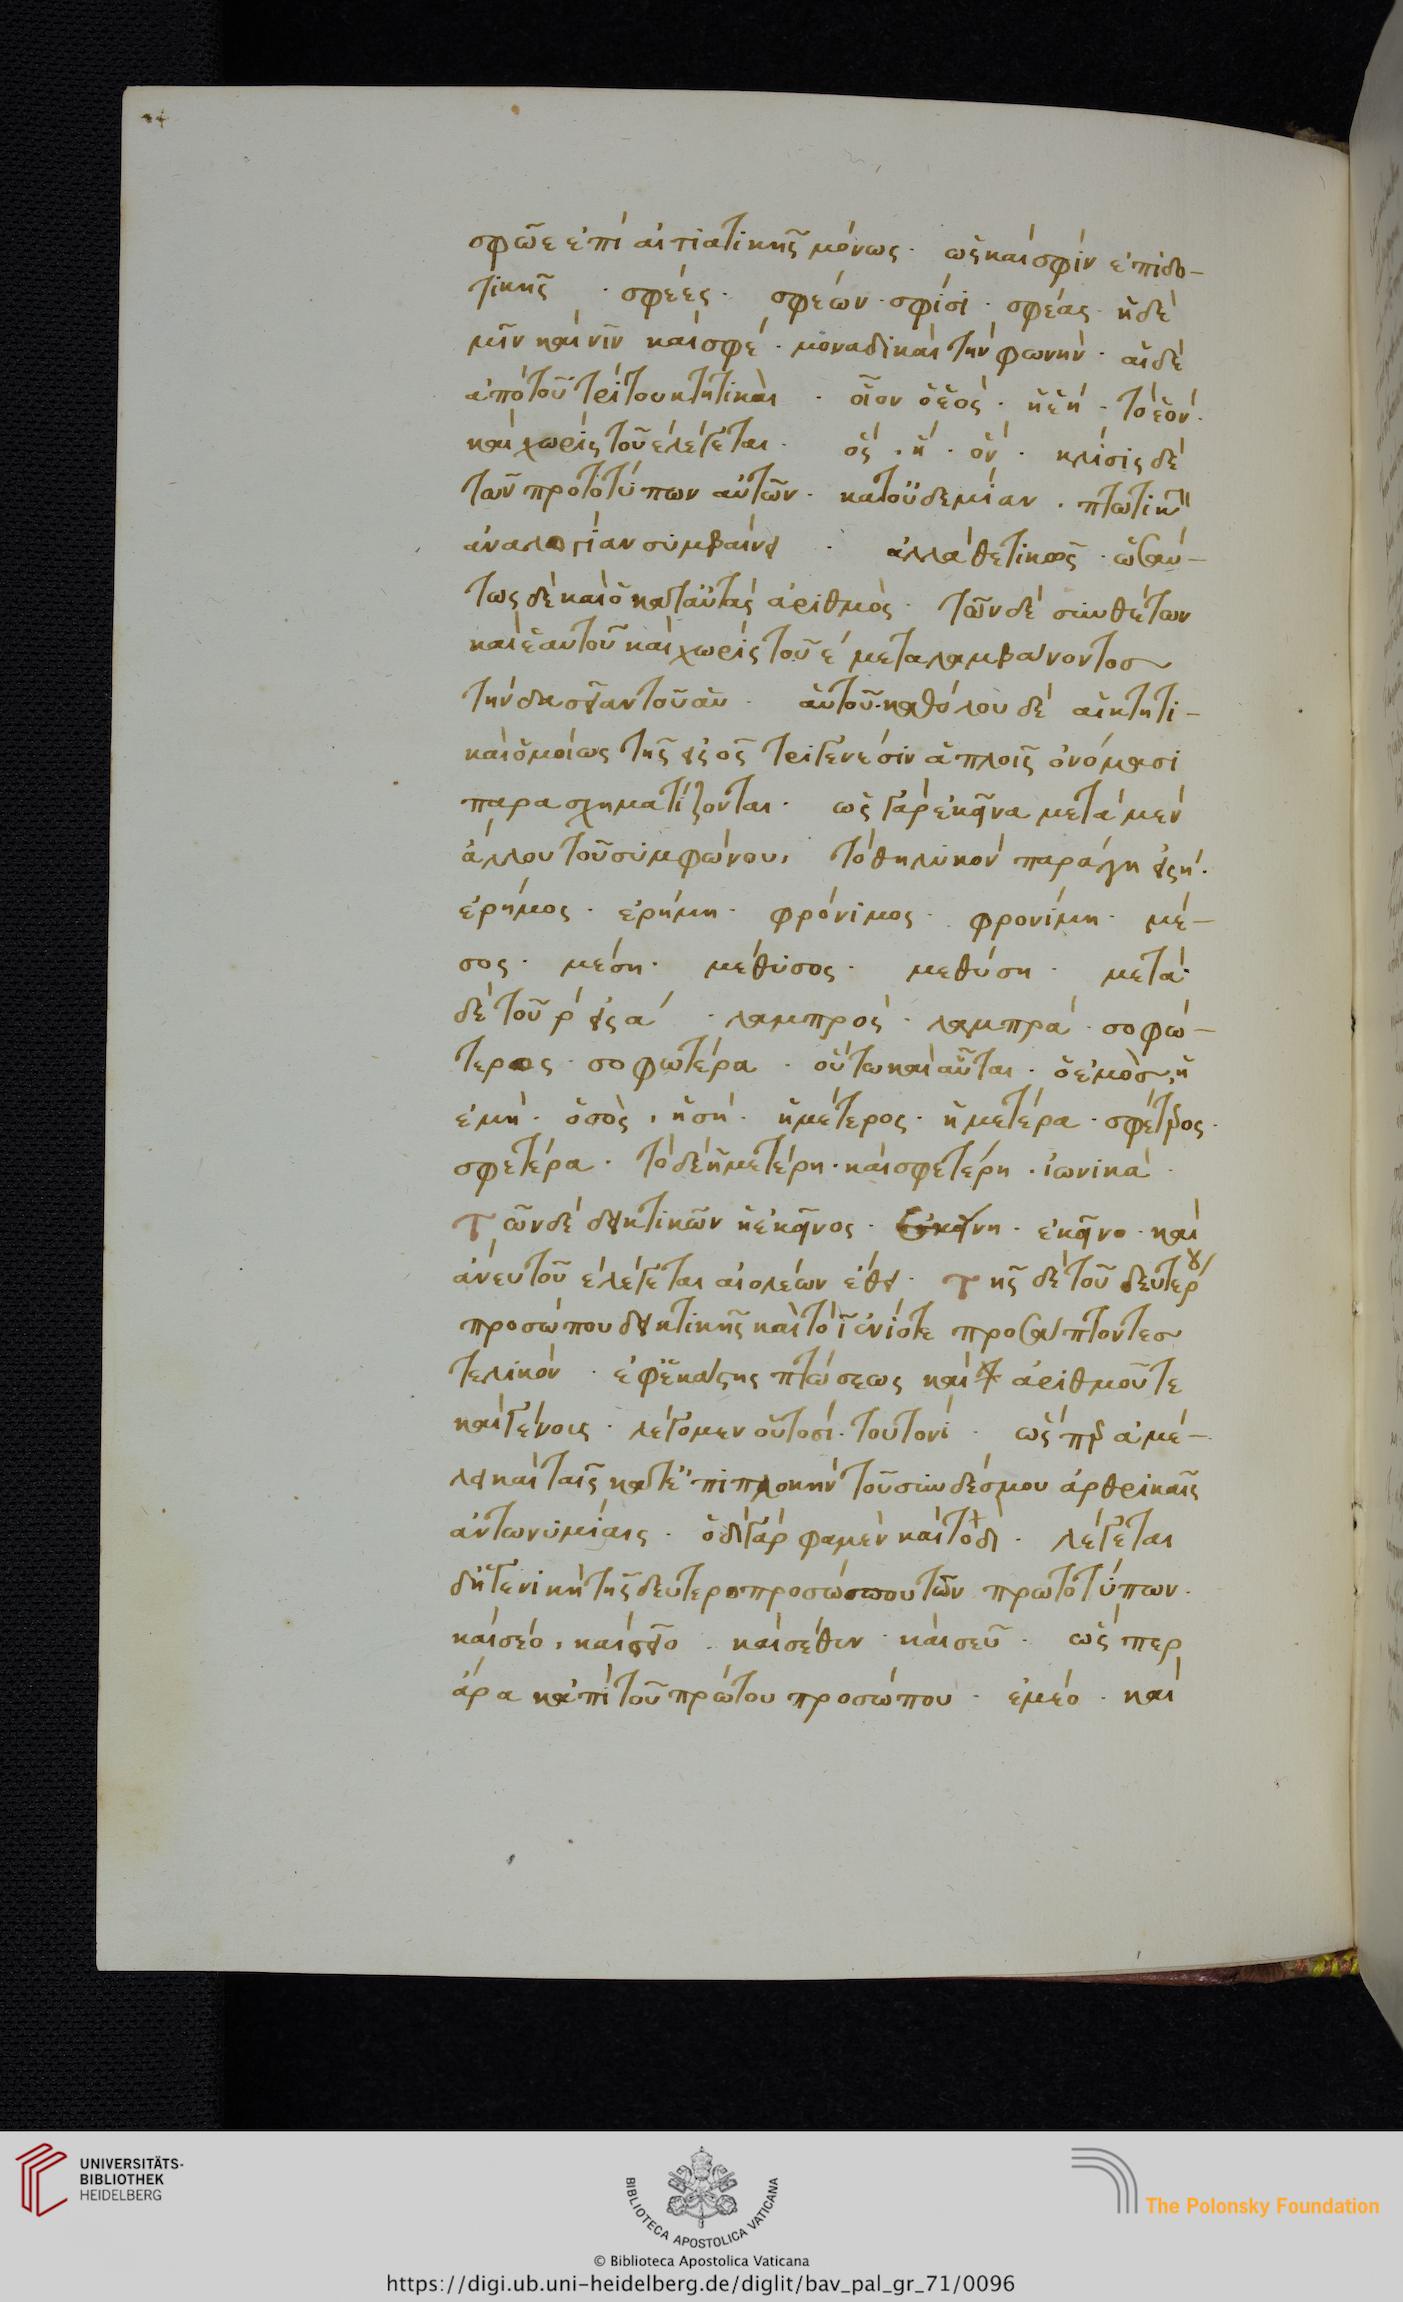 σφῶε ἐπὶ αἰτιατικῆς μόνως · ὡς καὶ σφὶν ἐπὶ δο-
τικῆς · σφέες · σφεών · σφίσι · σφέας · ἡ δὲ
μὶν καὶ νὶν καὶ σφέ · μοναδικαὶ τὴν φωνήν · αἱ δὲ
ἀπὸ τοῦ τρίτου κτητικαὶ · οἷον ὁ ἑὸς · ἡ ἑή · τὸ ἑόν ·
καὶ χωρὶς τοῦ ε λέγεται · ὃς · ἣ · ὃν · κλίσις δὲ
τῶν πρωτοτύπων αὐτῶν · κατ' οὐδεμίαν · πτωτικὴν
ἀναλογίαν συμβαίνει · ἀλλὰ θετικῶς · ὡσαύ-
τως δὲ καὶ ὁ κατ' αὐτὰς ἀριθμὸς · τῶν δὲ συνθέτων
καὶ ἑαυτοῦ καὶ χωρὶς τοῦ ε μεταλαμβάνοντος
τὴν δασεῖαν τοῦ αυ · αὑτοῦ · καθόλου δὲ αἱ κτητι-
καὶ ὁμοίως τῆς εἰς ος τριγενέσιν ἁπλοῖς ὀνόμασι
παρασχηματίζονται · ὡς γὰρ ἐκεῖνα μετὰ μὲν
ἄλλου τοῦ συμφώνου, τὸ θηλυκὸν παράγει εἰς η ·
ἐρῆμος · ἐρήμη · φρόνιμος · φρονίμη · μέ-
σος · μέση · μέθυσος · μεθύση · μετὰ
δὲ τοῦ ρ εἰς α · λαμπρὸς · λαμπρά · σοφώ-
τερος · σοφωτέρα · οὕτω καὶ αὗται · ὁ ἐμὸς, ἡ
ἐμή · ὁ σὸς, ἡ σή · ἡμέτερος · ἡμετέρα · σφέτερος ·
σφετέρα · τὸ δὲ ἡμετέρη · καὶ σφετέρη · ἰωνικά ·
Τῶν δὲ δεικτικῶν ἡ ἐκεῖνος · ἐκείνη · ἐκεῖνο · καὶ
ἄνευ τοῦ ε λέγεται αἰολέων ἔθει · Τῆς δὲ τοῦ δευτέρου
προσώπου δεικτικῆς καὶ τὸ ῑ ἐνίοτε προσάπτοντες
τελικόν · ἐφ' ἑκάστης πτώσεως καὶ ἀριθμοῦ τε
καὶ γένους · λέγομεν οὑτοσί · τουτονί · ὥσπερ ἀμέ-
λει καὶ ταῖς κατ' ἐπιπλοκὴν τοῦ συνδέσμου ἀρθρικαῖς
ἀντωνυμίαις · ὁδὶ γάρ φαμεν καὶ τοδὶ · λέγεται
δὴ γενικὴ τῆς δευτεροπροσώπου τῶν πρωτοτύπων ·
καὶ σέο, καὶ σεῖο · καὶ σέθεν · καὶ σεῦ · ὥσπερ
ἄρα κἀπὶ τοῦ πρώτου προσώπου · ἐμέο · καὶ
UNIVERSITÄTS-
BIBLIOTHEK
HEIDELBERG
BIBLIOTECA APOSTOLICA VATICANA
The Polonsky Foundation
© Biblioteca Apostolica Vaticana
https://digi.ub.uni-heidelberg.de/diglit/bav_pal_gr_71/0096